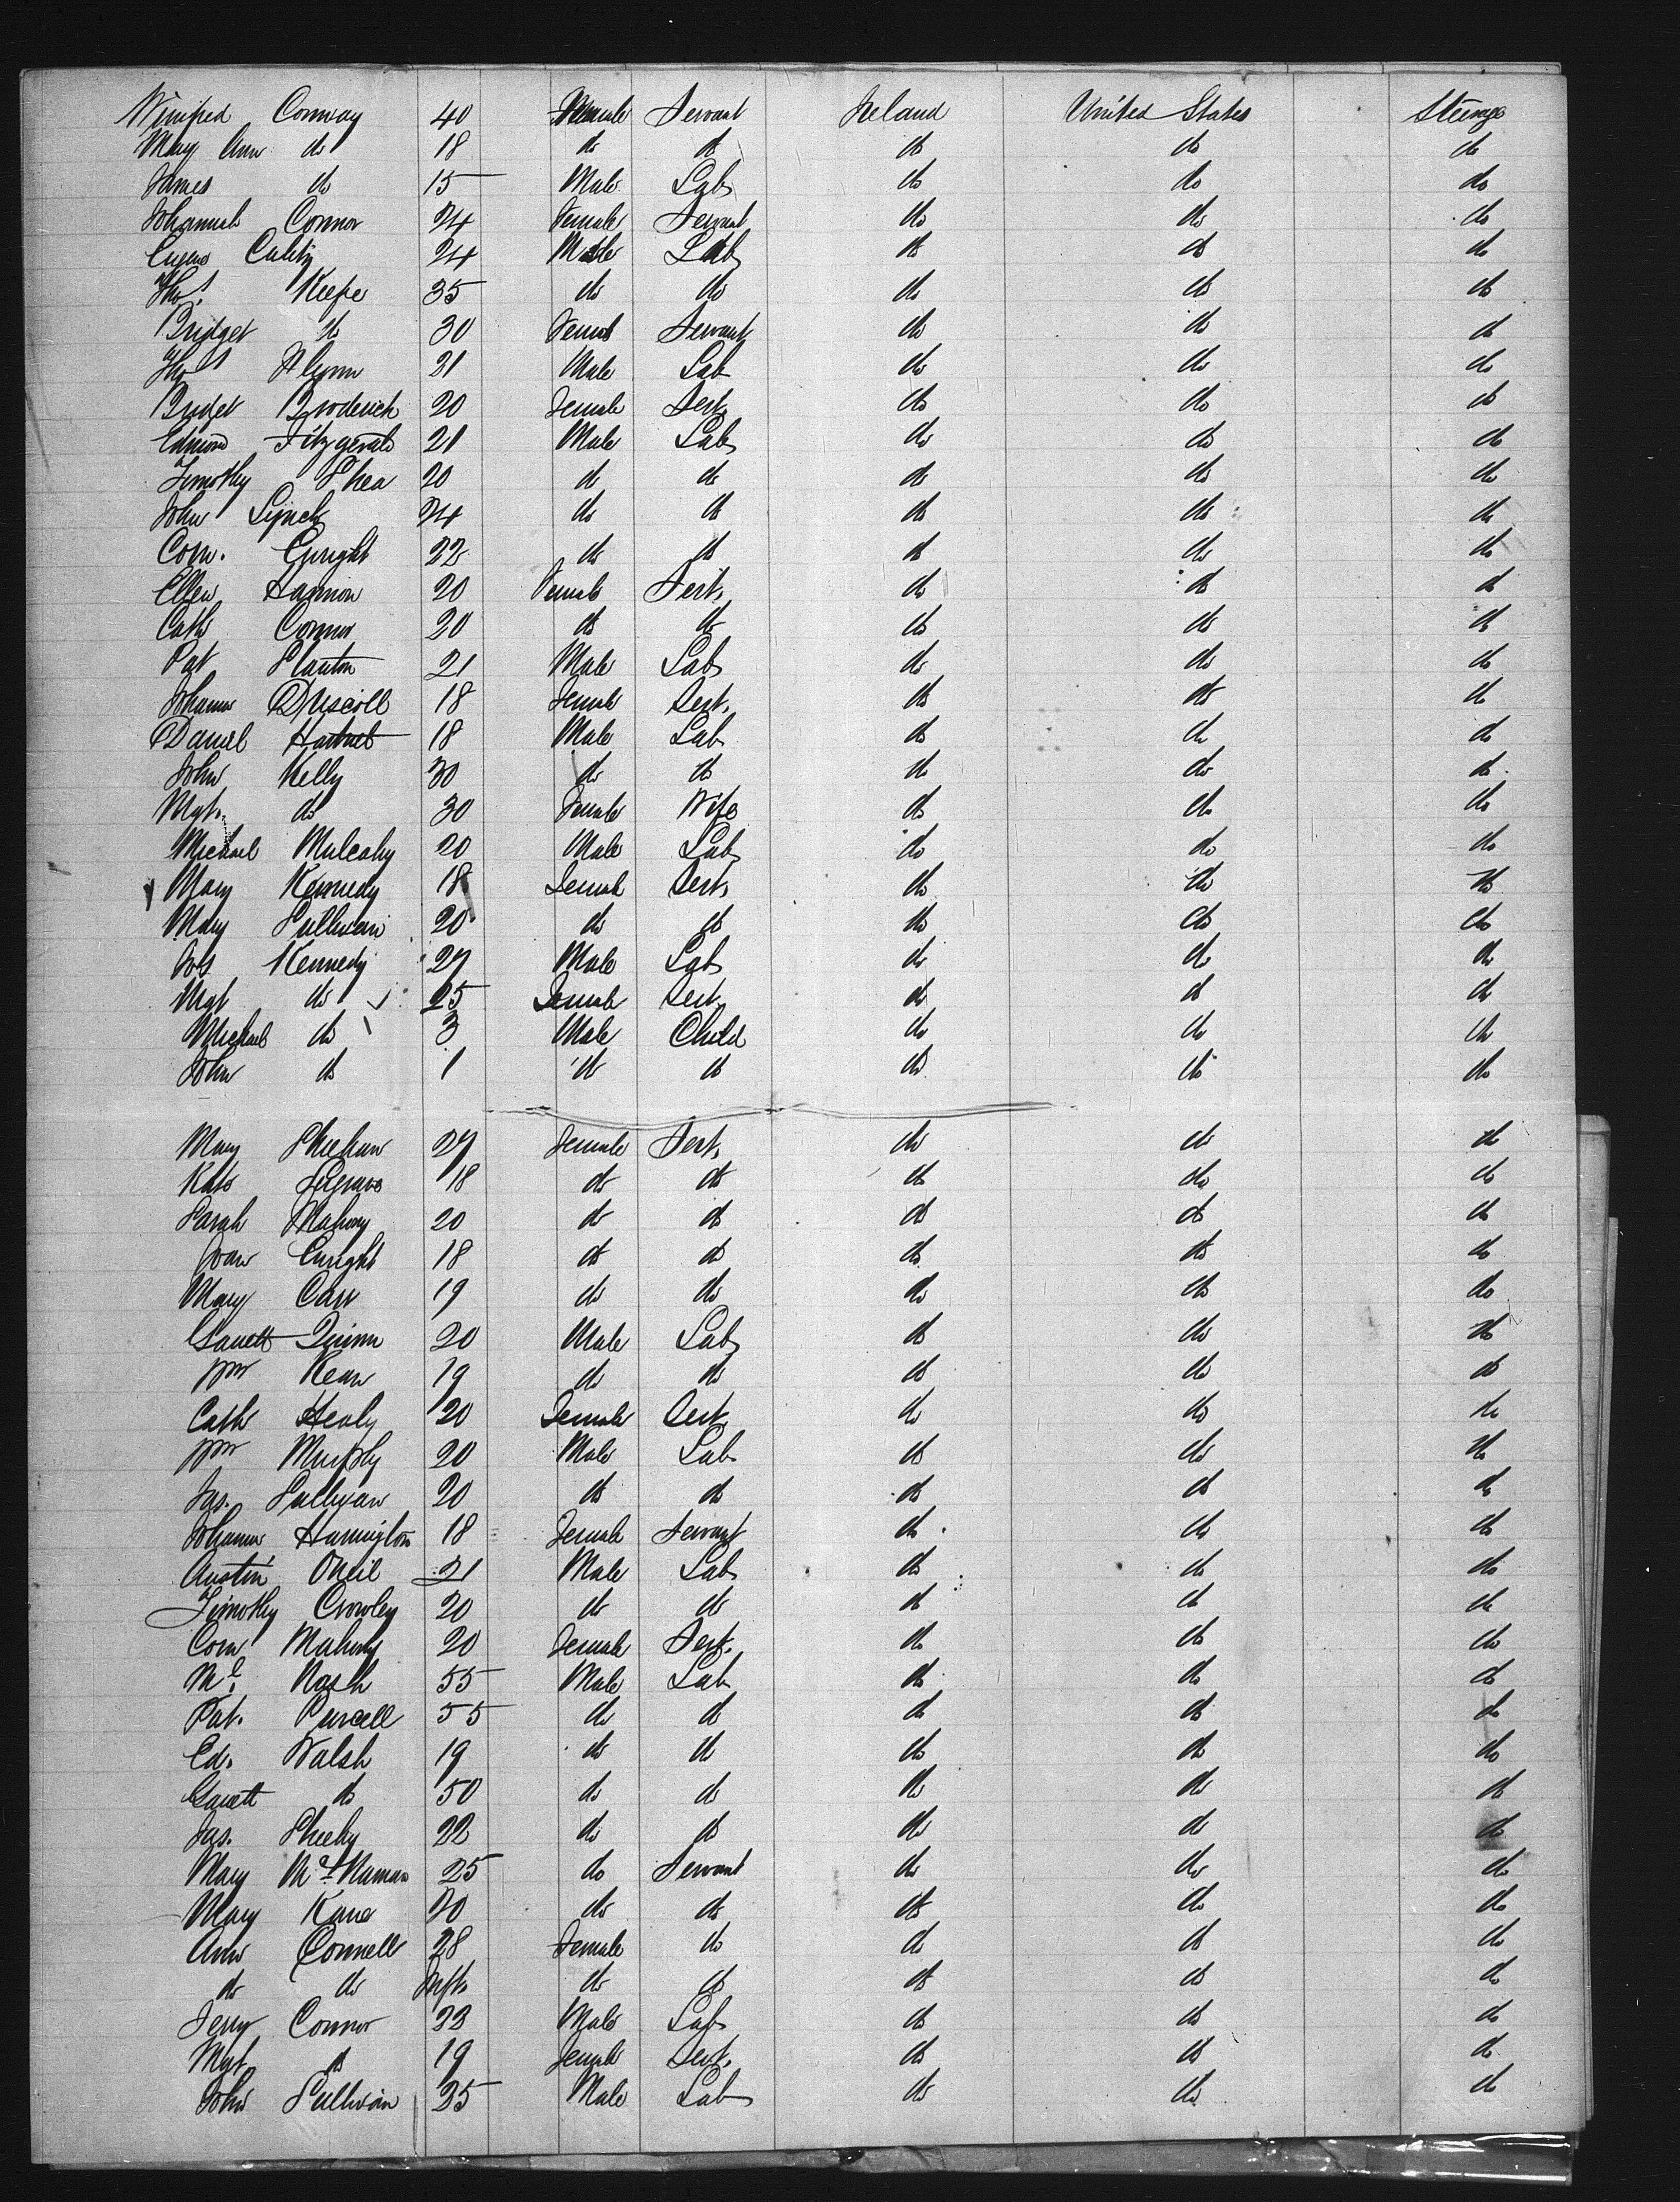 Winifred Conway 40 Female Servant Ireland United States Steerage
Mary Ann do 18 do do do do do
James do 15 Male Lab do do do
Johannah Connor 24 Female Servant do do do
24 Male Lab do do do
Thos Keefe 35 do do do do do
Bridget do 30 Female Servant do do do
Thos Flynn 21 Male Lab do do do
Bridget Broderick 20 Female Sert. do do do
Edmond Fitzgerald 21 Male Lab do do do
Timothy Shea 20 do do do do do
John Lynch 24 do do do do do
Corn. Enright 22 do do do do do
Ellen Hannon 20 Female Sert. do do do
Cath Connor 20 do do do do do
Pat Slanton 21 Male Lab do do do
Johanna Driscoll 18 Female Sert. do do do
Daniel Hartnet 18 Male Lab do do do
John Kelly 30 do do do do do
Mgt. do 30 Female Wife do do do
Michael Mulcahy 20 Male Lab do do do
Mary Kennedy 18 Female Sert. do do do
Mary Sullivan 20 do do do do do
Kennedy 27 Male Lab do do do
Mgt do 25 Female Sert. do do do
Michael do 3 Male Child do do do
John do 1 do do do do do
Mary Sheehan 27 Female Sert. do do do
Kate 18 do do do do do
Sarah Mahony 20 do do do do do
Joan Enright 18 do do do do do
Mary Carr 19 do do do do do
Garrett Quinn 20 Male Lab do do do
Wm Kean 19 do do do do do
Cath Healy 20 Female Sert. do do do
Wm Murphy 20 Male Lab do do do
Jas. Sullivan 20 do do do do do
Johanna Harrington 18 Female Servant do do do
Austin ONeil 21 Male Lab do do do
Timothy Crowley 20 do do do do do
Corn Mahony 20 Female Sert. do do do
Ml. Nash 55 Male Lab do do do
Pat. Purcell 55 do do do do do
Ed. Walsh 19 do do do do do
Garett do 50 do do do do do
Jas. Sheehy 22 do do do do do
Mary McNamara 25 do Servant do do do
Mary Kane 20 do do do do do
Ann Connell 28 Female do do do do
do do Inft. do do do do do
Jerry Connor 22 Male Lab do do do
Mgt. do 19 Female Sert. do do do
John Sullivan 25 Male Lab do do do